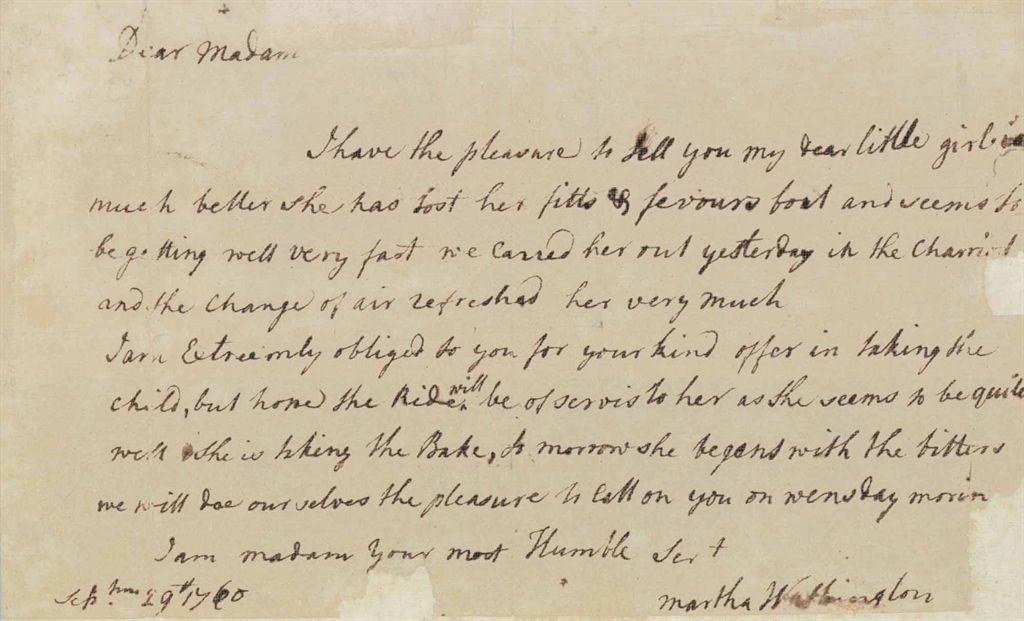 Dear Madam
I have the pleasure to tell you my dear little girl is
much better she has lost her fitts & fevours boat and seems to
be getting well very fast we carred her out yesterday in the Charriot
and the Change of air refreshed her very much
I am Extreemly obliged to you for your kind offer in taking the
child, but hope the Ride will be of servis to her as she seems to be quite
well she is taking the Bake, to morrow she begens with the bitters
we will doe ourselves the pleasure to Call on you on wensday morin
I am madam your most Humble Sert
Sepbm 29th 1760
martha Washington